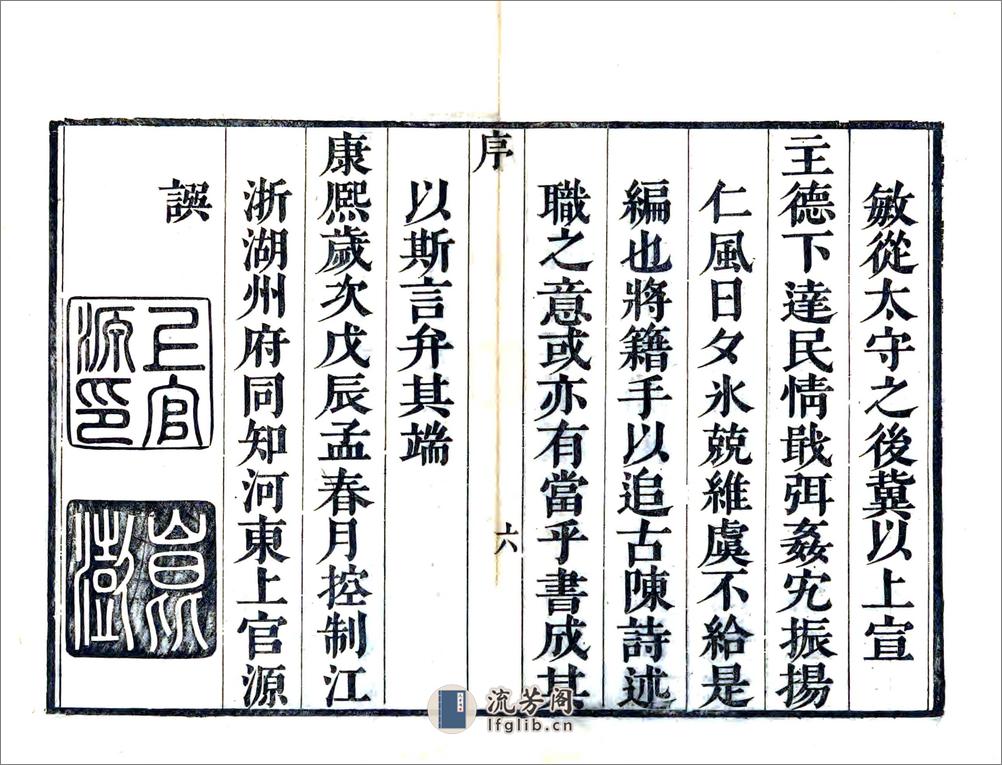 敏從太守之後冀以上宣
主德下達民情戢弭姦宄振揚
仁風日夕氷兢維虞不給是
編也將籍手以追古陳詩述
職之意或亦有當乎書成其
序
六
以斯言弁其端
康熈歲次戊辰孟春月控制江
浙湖州府同知河東上官源
譔
上官
源印
流芳阁
lfglib.cn